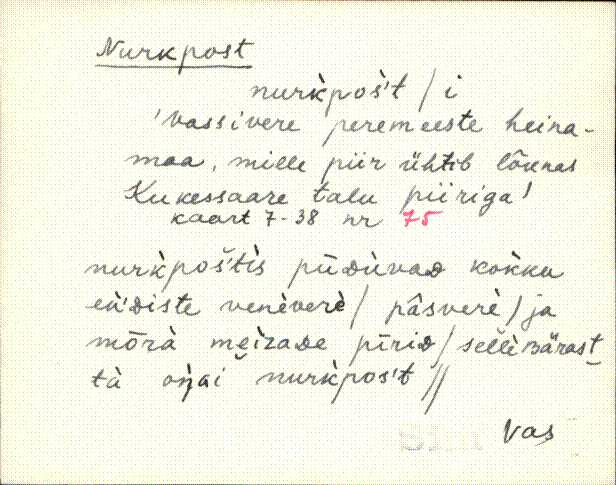 Nurkpost
nurk̀poš't / i
'vassivere peremeeste heina-
maa, mille piir ühtib lõunas
Kukessaare talu piiriga'
kaart 7-38 nr 75
nurk̀poštìs pū̆dùvad kok̀ku
eǹ'diste venèverè / pâsverè / ja
mōrà meìzade pīrid / sellè
tà nurk̀pos't //
Vas